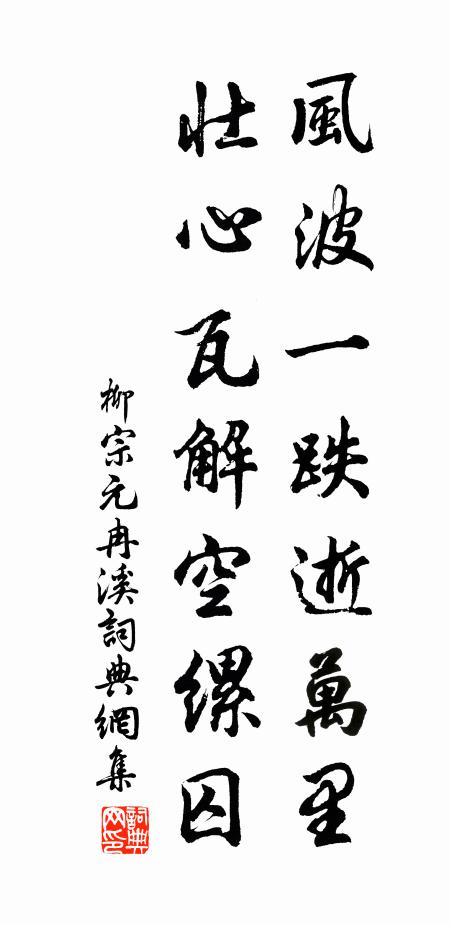 風波一跌逝萬里
壯心瓦解空縲囚
柳宗元冉溪詞典網集
詞典网印